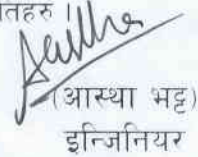 तिहरु ।
(आस्था भट्ट)
इन्जिनियर